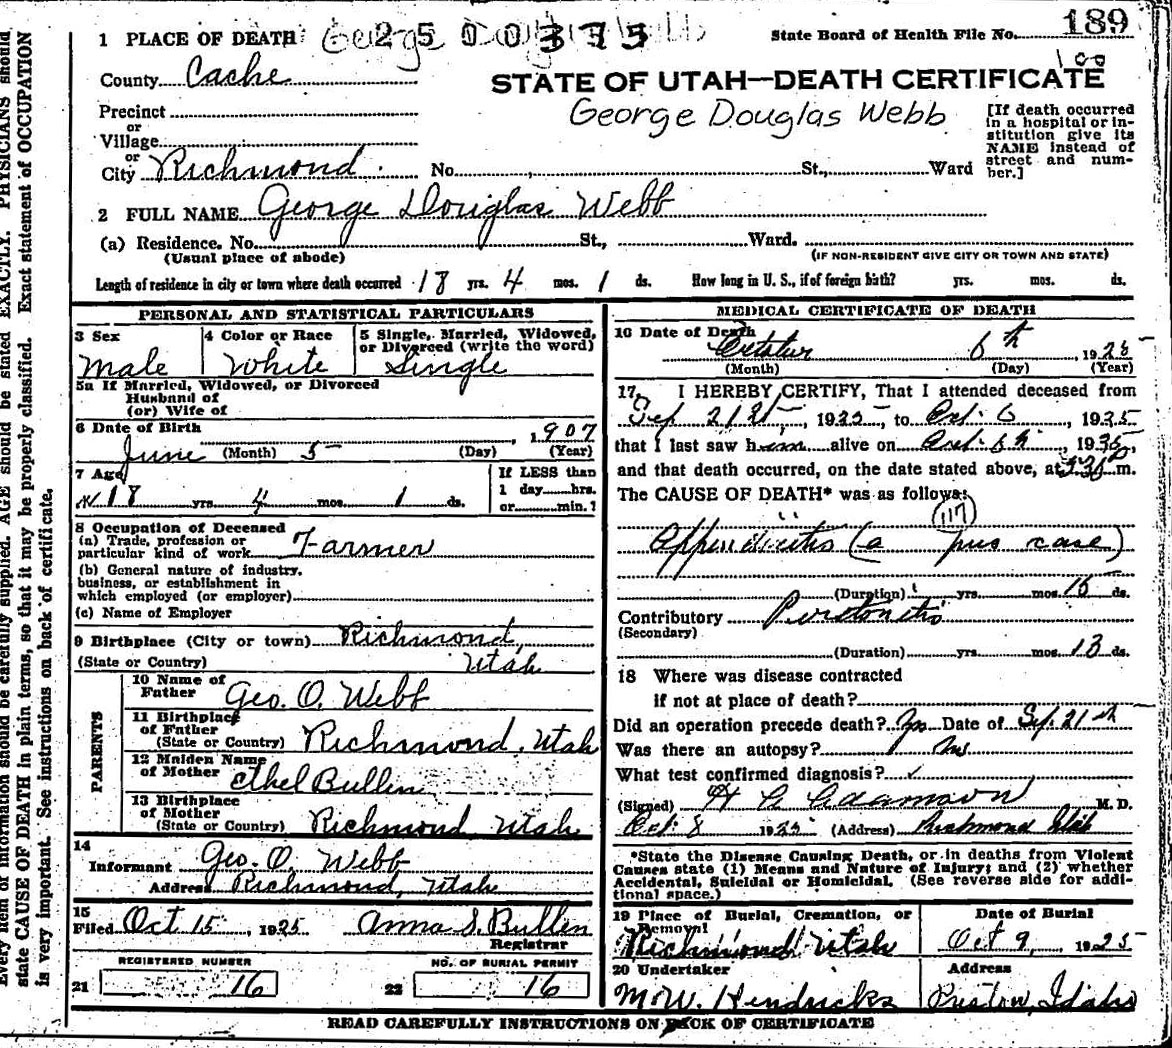 189
1 PLACE OF DEATH 2500375
State Board of Health File No.
100
County Cache
STATE OF UTAH—DEATH CERTIFICATE
George Douglas Webb
[If death occurred
in a hospital or in-
stitution give its
NAME instead of
street and num-
ber.]
Precinct
or
Village
or
City Richmond. No. St., Ward
2 FULL NAME George Douglas Webb
(a) Residence. No. St., Ward.
(Usual place of abode) (IF NON-RESIDENT GIVE CITY OR TOWN AND STATE)
Length of residence in city or town where death occurred 18 yrs. 4 mos. 1 ds. How long in U. S., if of foreign birth? yrs. mos. ds.
PERSONAL AND STATISTICAL PARTICULARS
3 Sex
Male
4 Color or Race
White
5 Single, Married, Widowed,
or Divorced (write the word)
Single
5a If Married, Widowed, or Divorced
Husband of
(or) Wife of
6 Date of Birth
June (Month) 5 (Day) , 1907 (Year)
7 Age
18 yrs. 4 mos. 1 ds.
If LESS than
1 day hrs.
or min.?
8 Occupation of Deceased
(a) Trade, profession or
particular kind of work Farmer
(b) General nature of industry,
business, or establishment in
which employed (or employer)
(c) Name of Employer
9 Birthplace (City or town) Richmond,
(State or Country) Utah
PARENTS
10 Name of
Father Geo. O. Webb
11 Birthplace
of Father
(State or Country) Richmond, Utah
12 Maiden Name
of Mother Ethel Bullen
13 Birthplace
of Mother
(State or Country) Richmond, Utah
14
Informant Geo. O. Webb
Address Richmond, Utah
15
Filed Oct 15, 1925 Anna S. Bullen
Registrar
REGISTERED NUMBER
21 16
NO. OF BURIAL PERMIT
22 16
MEDICAL CERTIFICATE OF DEATH
16 Date of Death
October 6th, 1925
(Month) (Day) (Year)
17 I HEREBY CERTIFY, That I attended deceased from
Sep 21st, 1925 to Oct. 6 1925
that I last saw him alive on Oct. 6th, 1925,
and that death occurred, on the date stated above, at m.
The CAUSE OF DEATH* was as follows:
117
Appendicitis (a pus case)
(Duration) yrs. mos. 15 ds.
Contributory Peritonitis
(Secondary)
(Duration) yrs. mos. 13 ds.
18 Where was disease contracted
if not at place of death?
Did an operation precede death? Yes Date of Sep. 21st
Was there an autopsy? No
What test confirmed diagnosis? ✓
(Signed) Adamson M. D.
Oct. 8 1925 (Address) Richmond Utah
*State the Disease Causing Death, or in deaths from Violent
Causes state (1) Means and Nature of Injury; and (2) whether
Accidental, Suicidal or Homicidal. (See reverse side for addi-
tional space.)
19 Place of Burial, Cremation, or
Removal
Richmond Utah
Date of Burial
Oct 9, 1925
20 Undertaker
M. W. Hendricks
Address
Preston, Idaho
READ CAREFULLY INSTRUCTIONS ON BACK OF CERTIFICATE
Every item of information should be carefully supplied. AGE should be stated EXACTLY. PHYSICIANS should
state CAUSE OF DEATH in plain terms, so that it may be properly classified. Exact statement of OCCUPATION
is very important. See instructions on back of certificate.